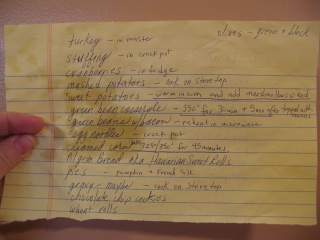 olives - green + black
turkey - in roaster
stuffing - in crock pot
cranberries - in fridge
mashed potatoes - cook on stove top
sweet potatoes - warm in oven and add marshmallows
green bean casserole - 350° for 30 min + 5 min after topped with onions
green beans w/bacon - reheat in microwave
egg noodles - crock pot
creamed corn 325°/350° for 45 minutes
Pilgrim Bread aka Hawaiian Sweet Rolls
pies - pumpkin + French Silk
gravy - maybe - cook on stove top
chocolate chip cookies
wheat rolls